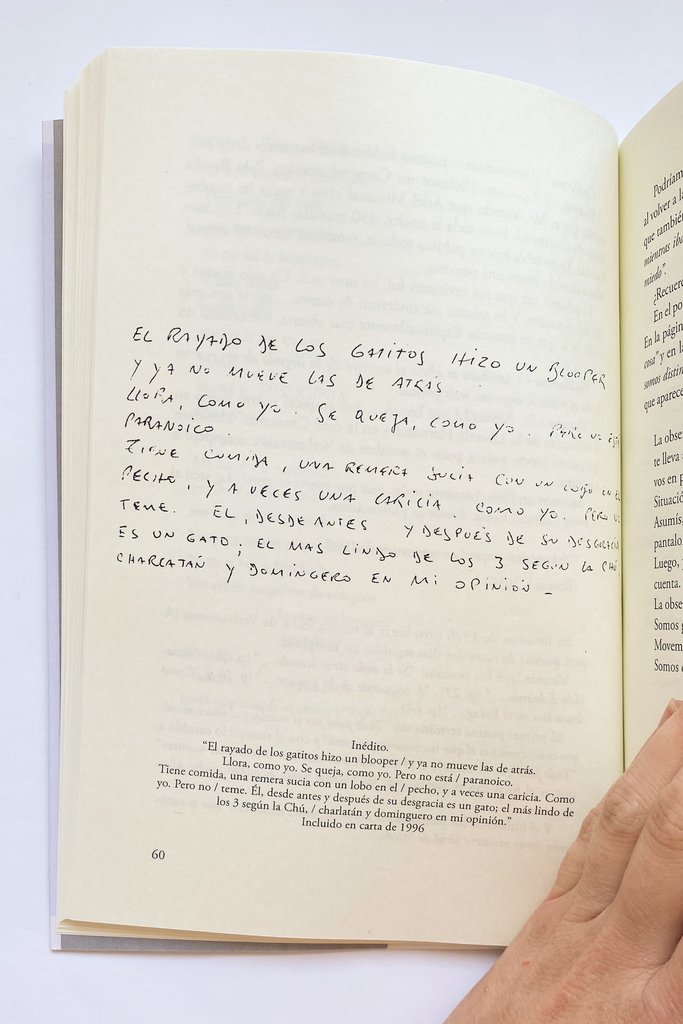 EL RAYADO DE LOS GATITOS HIZO UN BLOOPER
Y YA NO MUEVE LAS DE ATRÁS.
LLORA, COMO YO. SE QUEJA, COMO YO. PERO NO
PARANOICO
TIENE COMIDA, UNA REMERA SUCIA CON UN LOBO EN
PECHO, Y A VECES UNA CARICIA. COMO YO. PERO
TEME. EL, DESDE ANTES Y DESPUÉS DE SU DESGRACIA
ES UN GATO; EL MAS LINDO DE LOS 3 SEGÚN LA CHÚ,
CHARLATÁN Y DOMINGERO EN MI OPINIÓN –
Inédito.
“El rayado de los gatitos hizo un blooper / y ya no mueve las de atrás.
Llora, como yo. Se queja, como yo. Pero no está / paranoico.
Tiene comida, una remera sucia con un lobo en el / pecho, y a veces una caricia. Como
yo. Pero no / teme. Él, desde antes y después de su desgracia es un gato; el más lindo de
los 3 según la Chú, / charlatán y dominguero en mi opinión.”
Incluido en carta de 1996
60
Podríam
al volver a la
que también
mientras iba
miedo”.
¿Recuer
En el po
En la págin
casa” y en la
somos distin
que aparece
La obse
te lleva
vos en p
Situació
Asumís
pantalo
Luego,
cuenta.
La obse
Somos
Movem
Somos